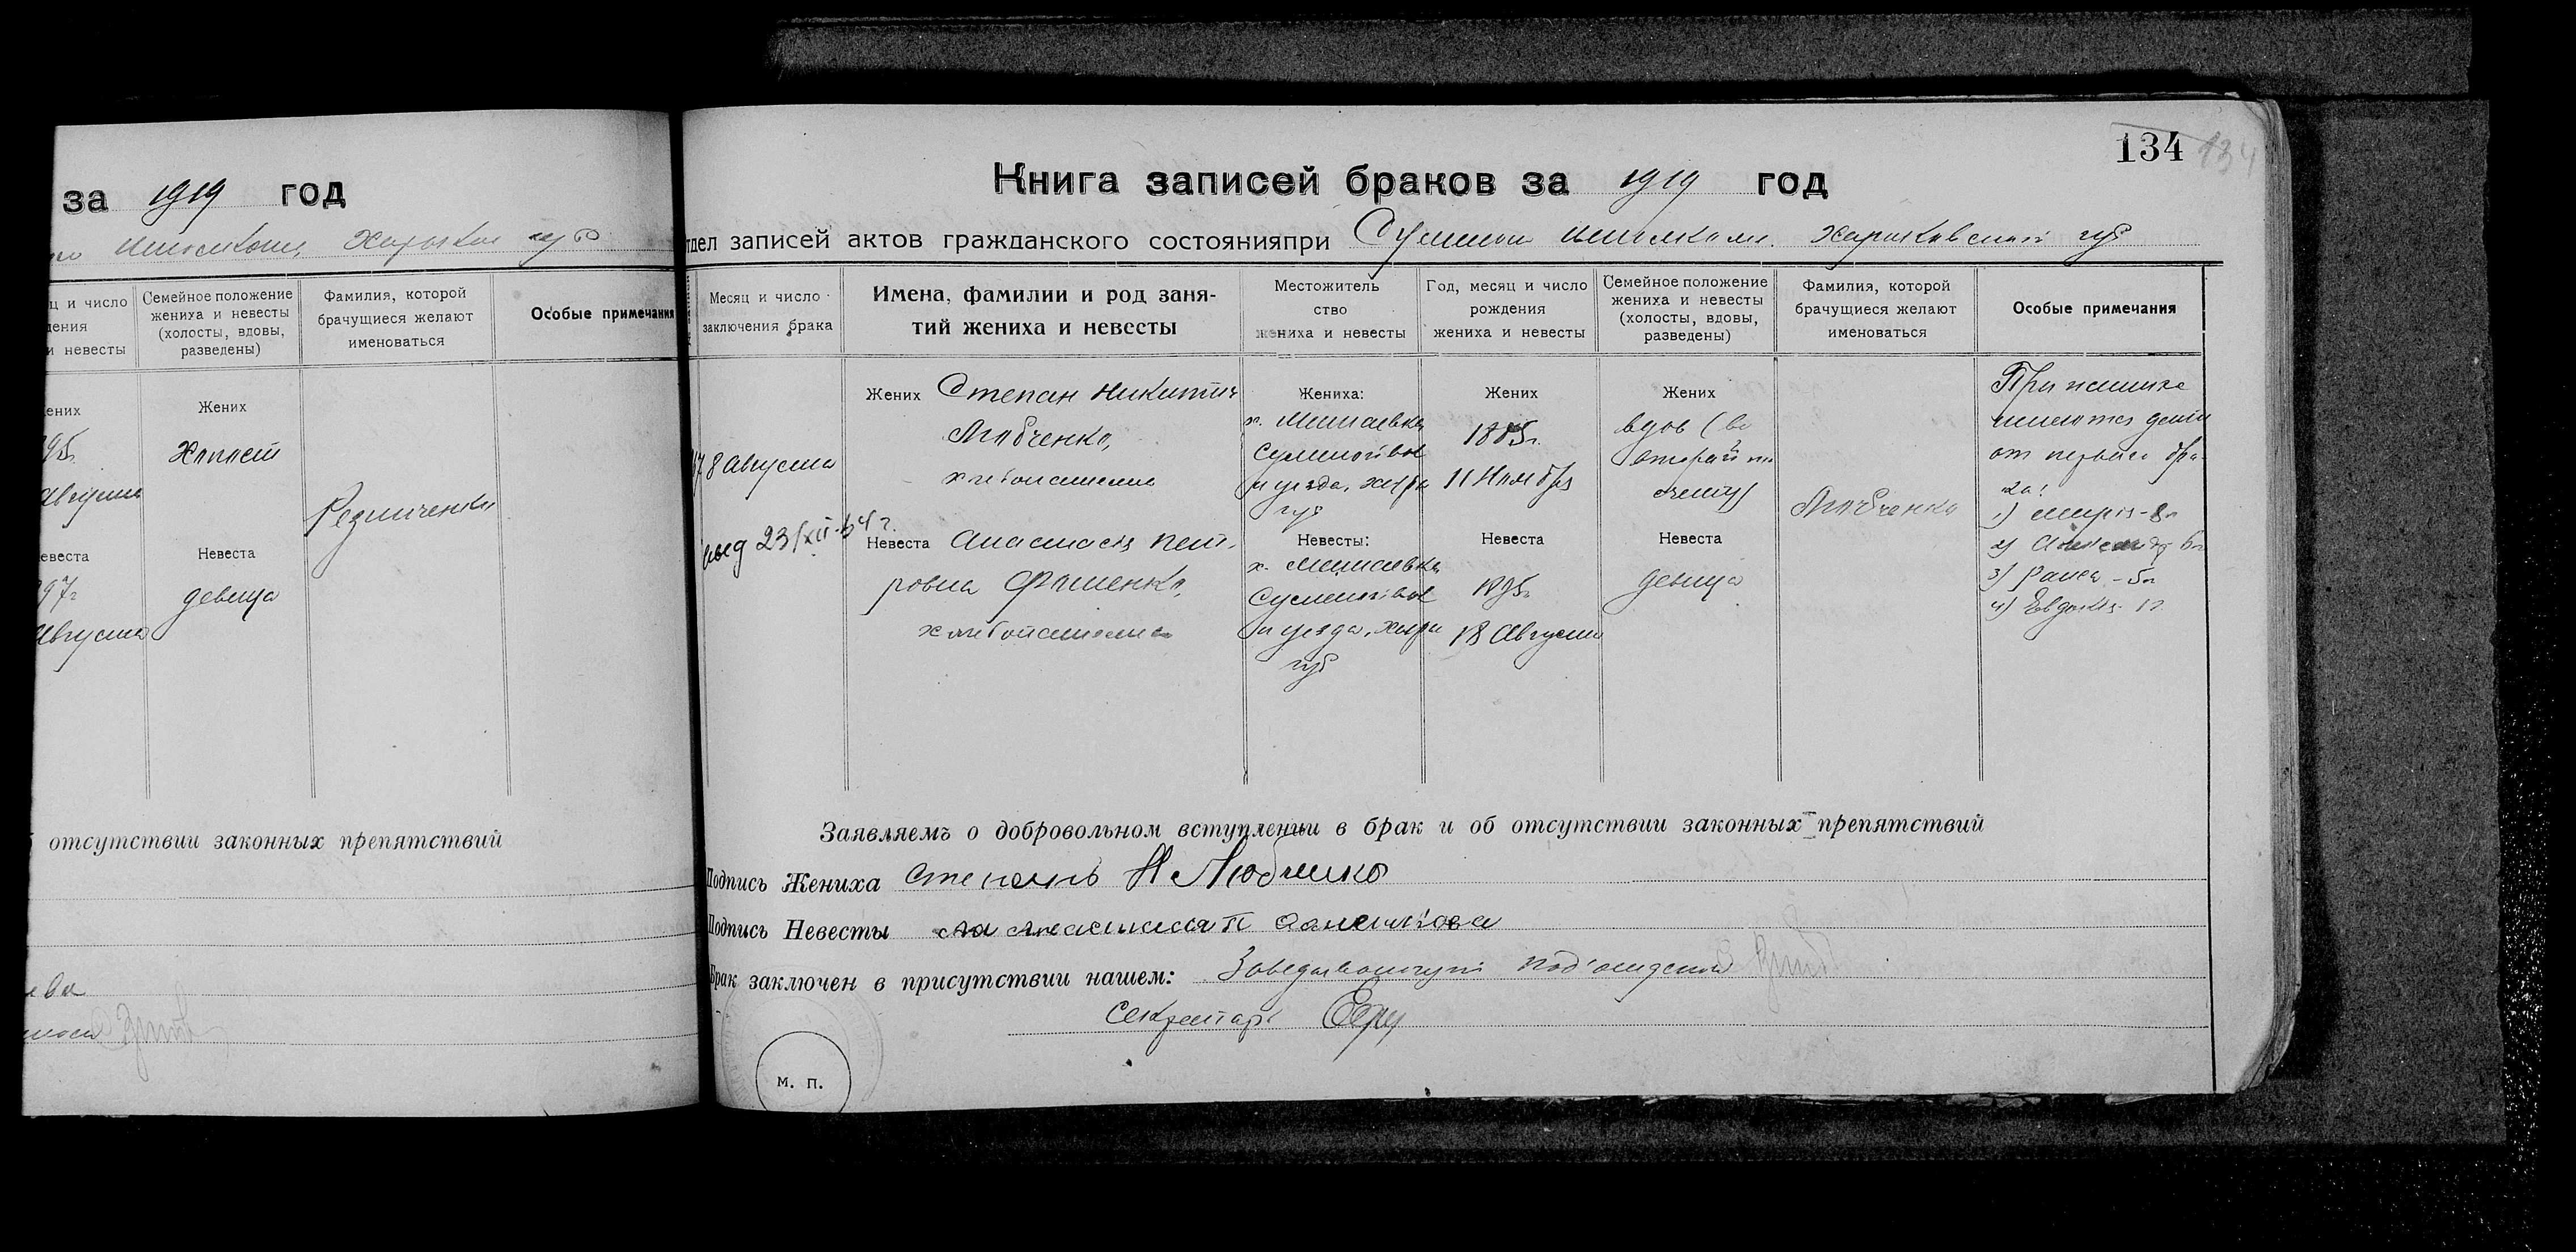 за 1919 год
Харьков губ
ц и число
дения
и невесты
Семейное положение
жениха и невесты
(холосты, вдовы,
разведены)
Фамилия, которой
брачущиеся желают
именоваться
Особые примечания
ених
95г.
Августа
Жених
Холост
Резниченко
евеста
97г
Августа
Невеста
девица
отсутствии законных препятствий
ева
134
134
Книга записей браков за 1919 год
тдел записей актов гражданского состоянияпри Сумском исполкоме Харьковской губ
Месяц и число
заключения брака
Имена, фамилии и род заня-
тий жениха и невесты
Местожитель
ство
жениха и невесты
Год, месяц и число
рождения
жениха и невесты
Семейное положение
жениха и невесты
(холосты, вдовы,
разведены)
Фамилия, которой
брачущиеся желают
именоваться
Особые примечания
8 Августа
выд 23/XII-64г.
Жених Степан Никитич
Любченко,
хлебопашец
Невеста Анастасия Пет-
ровна Фоменко,
хлебопашец
Жениха:
х.
Сумской вол
и уезда, Харьк
губ
Невесты:
х.
Сумской вол
и уезда, Харьк
губ
Жених
1885г.
11 Ноября
Невеста
1895г.
18 Августа
Жених
вдов (во
второй по
счету)
Невеста
девица
Любченко
При женихе
имеются дети
от первого бра-
ка:
1) Мария - 8л
2) Александр 6л
3) Раиса - 5л
4) Евдокия 1г.
Заявляемъ о добровольном вступлении в брак и об отсутствии законных препятствий
Подпись Жениха Степанъ Н Любченко
Подпись Невесты Анастасия П
Брак заключен в присутствии нашем: Заведывающий под'отделом
Секретарь
м. п.